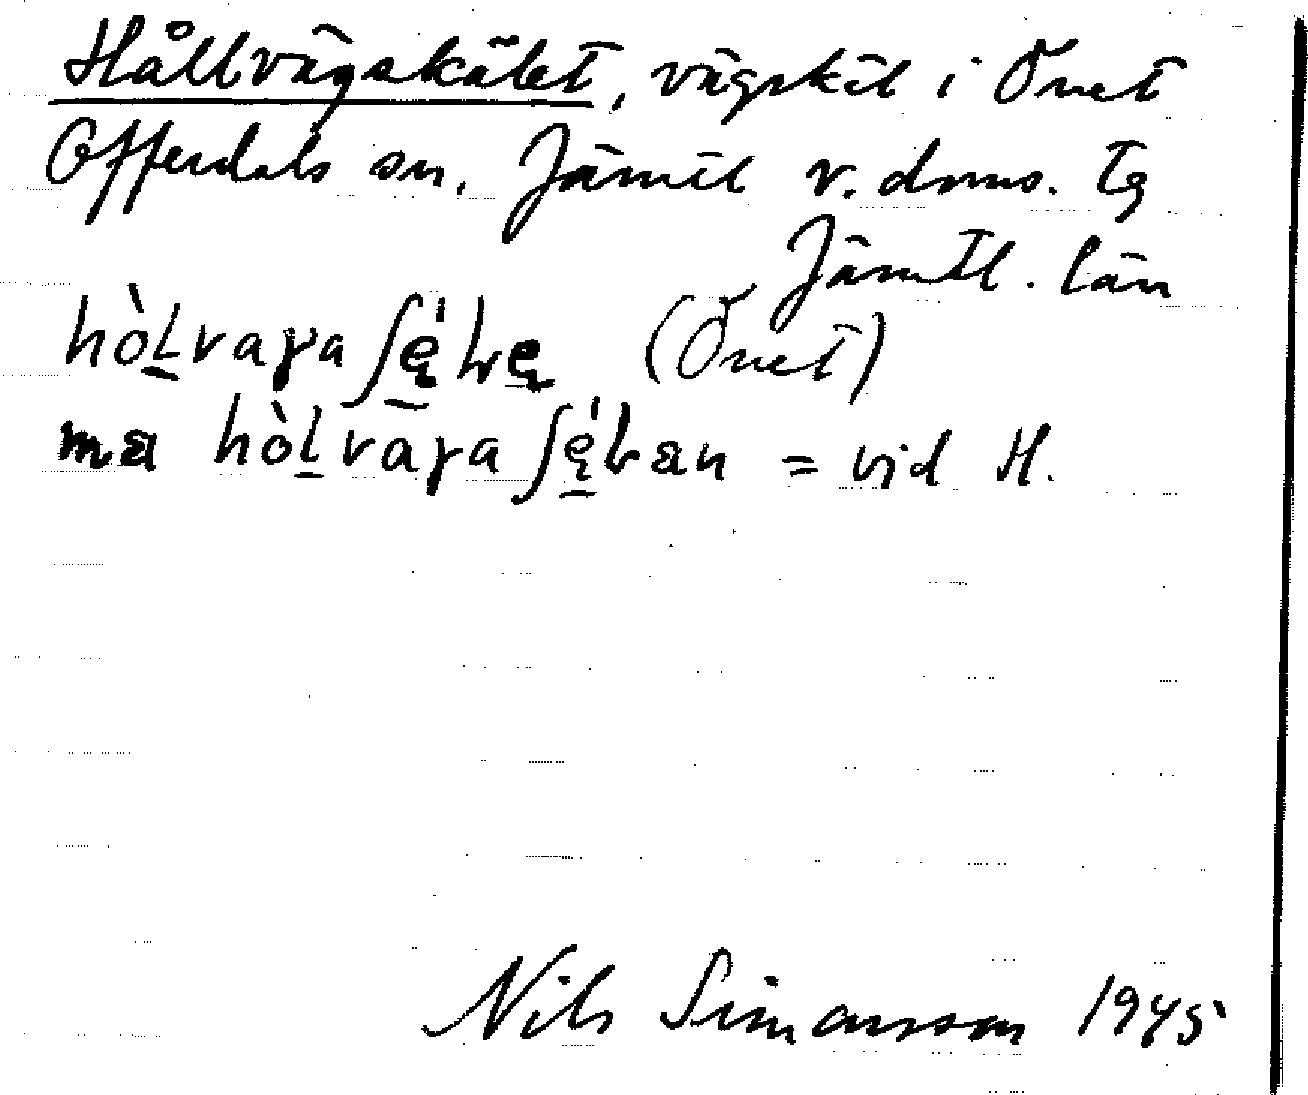 Hållvägskälet, vägskäl i Önet
Offerdals sn. Jämtl v. doms. tg
Jämtl. län
hòḷvaγaʃę̱́ʟę (Önet)
mæ hòḷvaγaʃę̱́ʟæn = vid H.
Nils Simonsson 1945